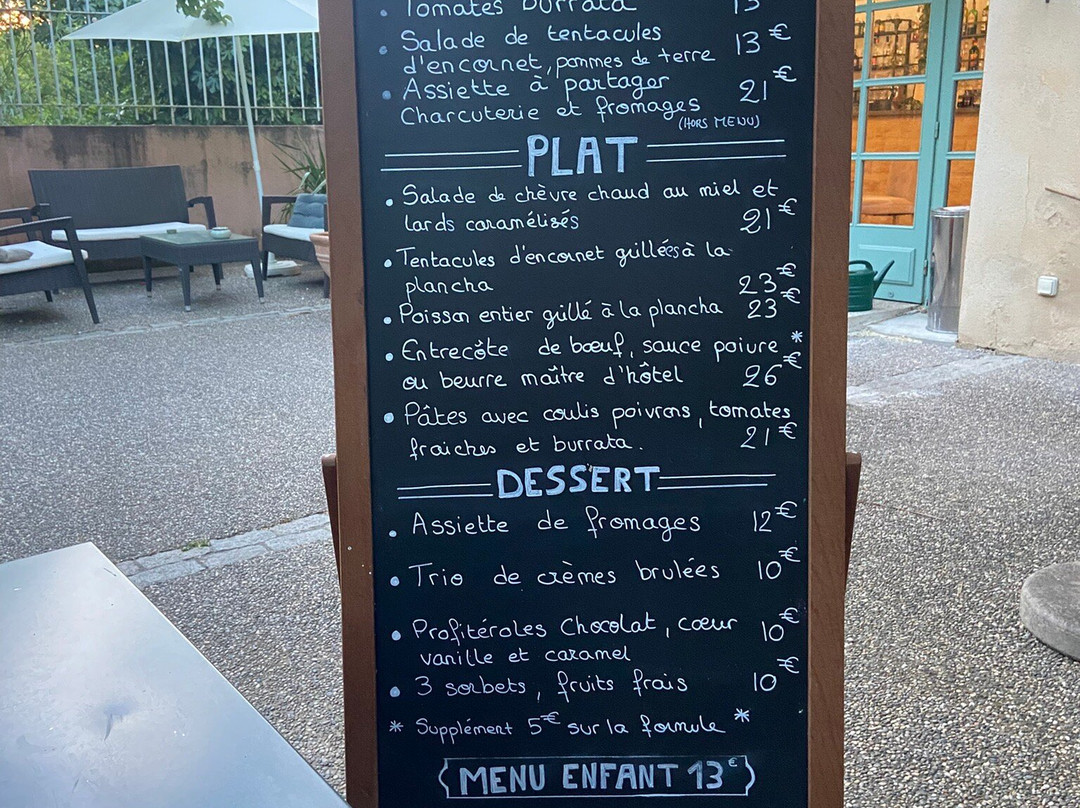 • Tomates Burrata 13
• Salade de tentacules
d'encornet, pommes de terre 13€
• Assiette à partager
Charcuterie et fromages 21€
(HORS MENU)
PLAT
• Salade de chèvre chaud au miel et
lards caramélisés 21€
• Tentacules d'encornet grillées à la
plancha 23€
• Poisson entier grillé à la plancha 23€
• Entrecôte de bœuf, sauce poivre *
ou beurre maître d'hôtel 26€
• Pâtes avec coulis poivrons, tomates
fraiches et burrata. 21€
DESSERT
• Assiette de fromages 12€
• Trio de crèmes brulées 10€
• Profitéroles Chocolat, cœur 10€
vanille et caramel
• 3 sorbets, fruits frais 10€
* Supplément 5€ sur la formule *
{MENU ENFANT 13€}